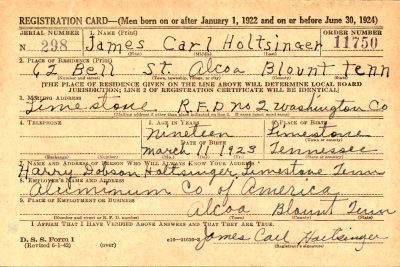 REGISTRATION CARD—(Men born on or after January 1, 1922 and on or before June 30, 1924)
SERIAL NUMBER 1. NAME (Print) ORDER NUMBER
N 298 James Carl Holtsinger 11750
2. PLACE OF RESIDENCE (Print)
62 Bell St. Alcoa Blount Tenn
(Number and street) (Town, township, village, or city) (County) (State)
[THE PLACE OF RESIDENCE GIVEN ON THE LINE ABOVE WILL DETERMINE LOCAL BOARD
JURISDICTION; LINE 2 OF REGISTRATION CERTIFICATE WILL BE IDENTICAL]
3. MAILING ADDRESS
Limestone R.F.D no 2 Washington Co
[Mailing address if other than place indicated on line 2. If same, insert word same]
4. TELEPHONE 5. AGE IN YEARS 6. PLACE OF BIRTH
Nineteen Limestone
DATE OF BIRTH (Town or county)
March 11 1923 Tennessee
(Exchange) (Number) (Mo.) (Day) (Yr.) (State or country)
7. NAME AND ADDRESS OF PERSON WHO WILL ALWAYS KNOW YOUR ADDRESS
Harry Dobson Holtsinger, Limestone Tenn
8. EMPLOYER'S NAME AND ADDRESS
Aluminum Co of America
9. PLACE OF EMPLOYMENT OR BUSINESS
Alcoa Blount Tenn
(Number and street or R. F. D. number) (Town) (County) (State)
I AFFIRM THAT I HAVE VERIFIED ABOVE ANSWERS AND THAT THEY ARE TRUE.
D. S. S. Form 1
(Revised 6-9-42) (over)
James Carl Holtsinger
(Registrant's signature)